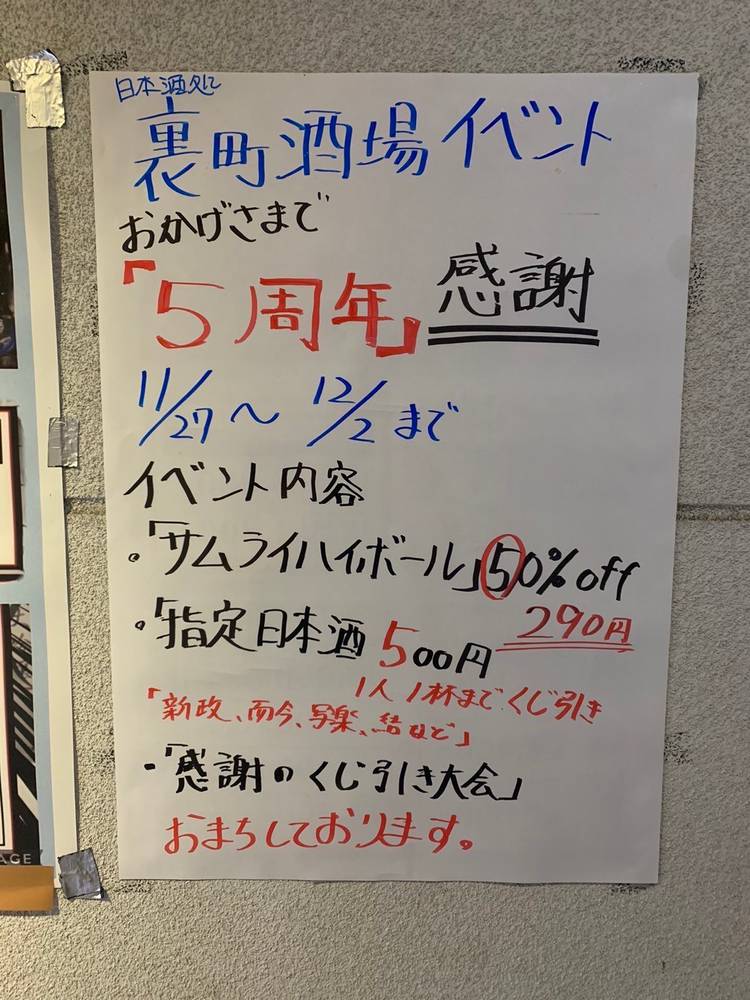 日本酒処
裏町酒場イベント
おかげさまで
「5周年」感謝
11/27〜12/2まで
イベント内容
・「サムライハイボール」50%off
290円
・「指定日本酒500円
1人1杯まで くじ引き
「新政、而今、写楽、結など」
・「感謝のくじ引き大会」
おまちしております。
AGE